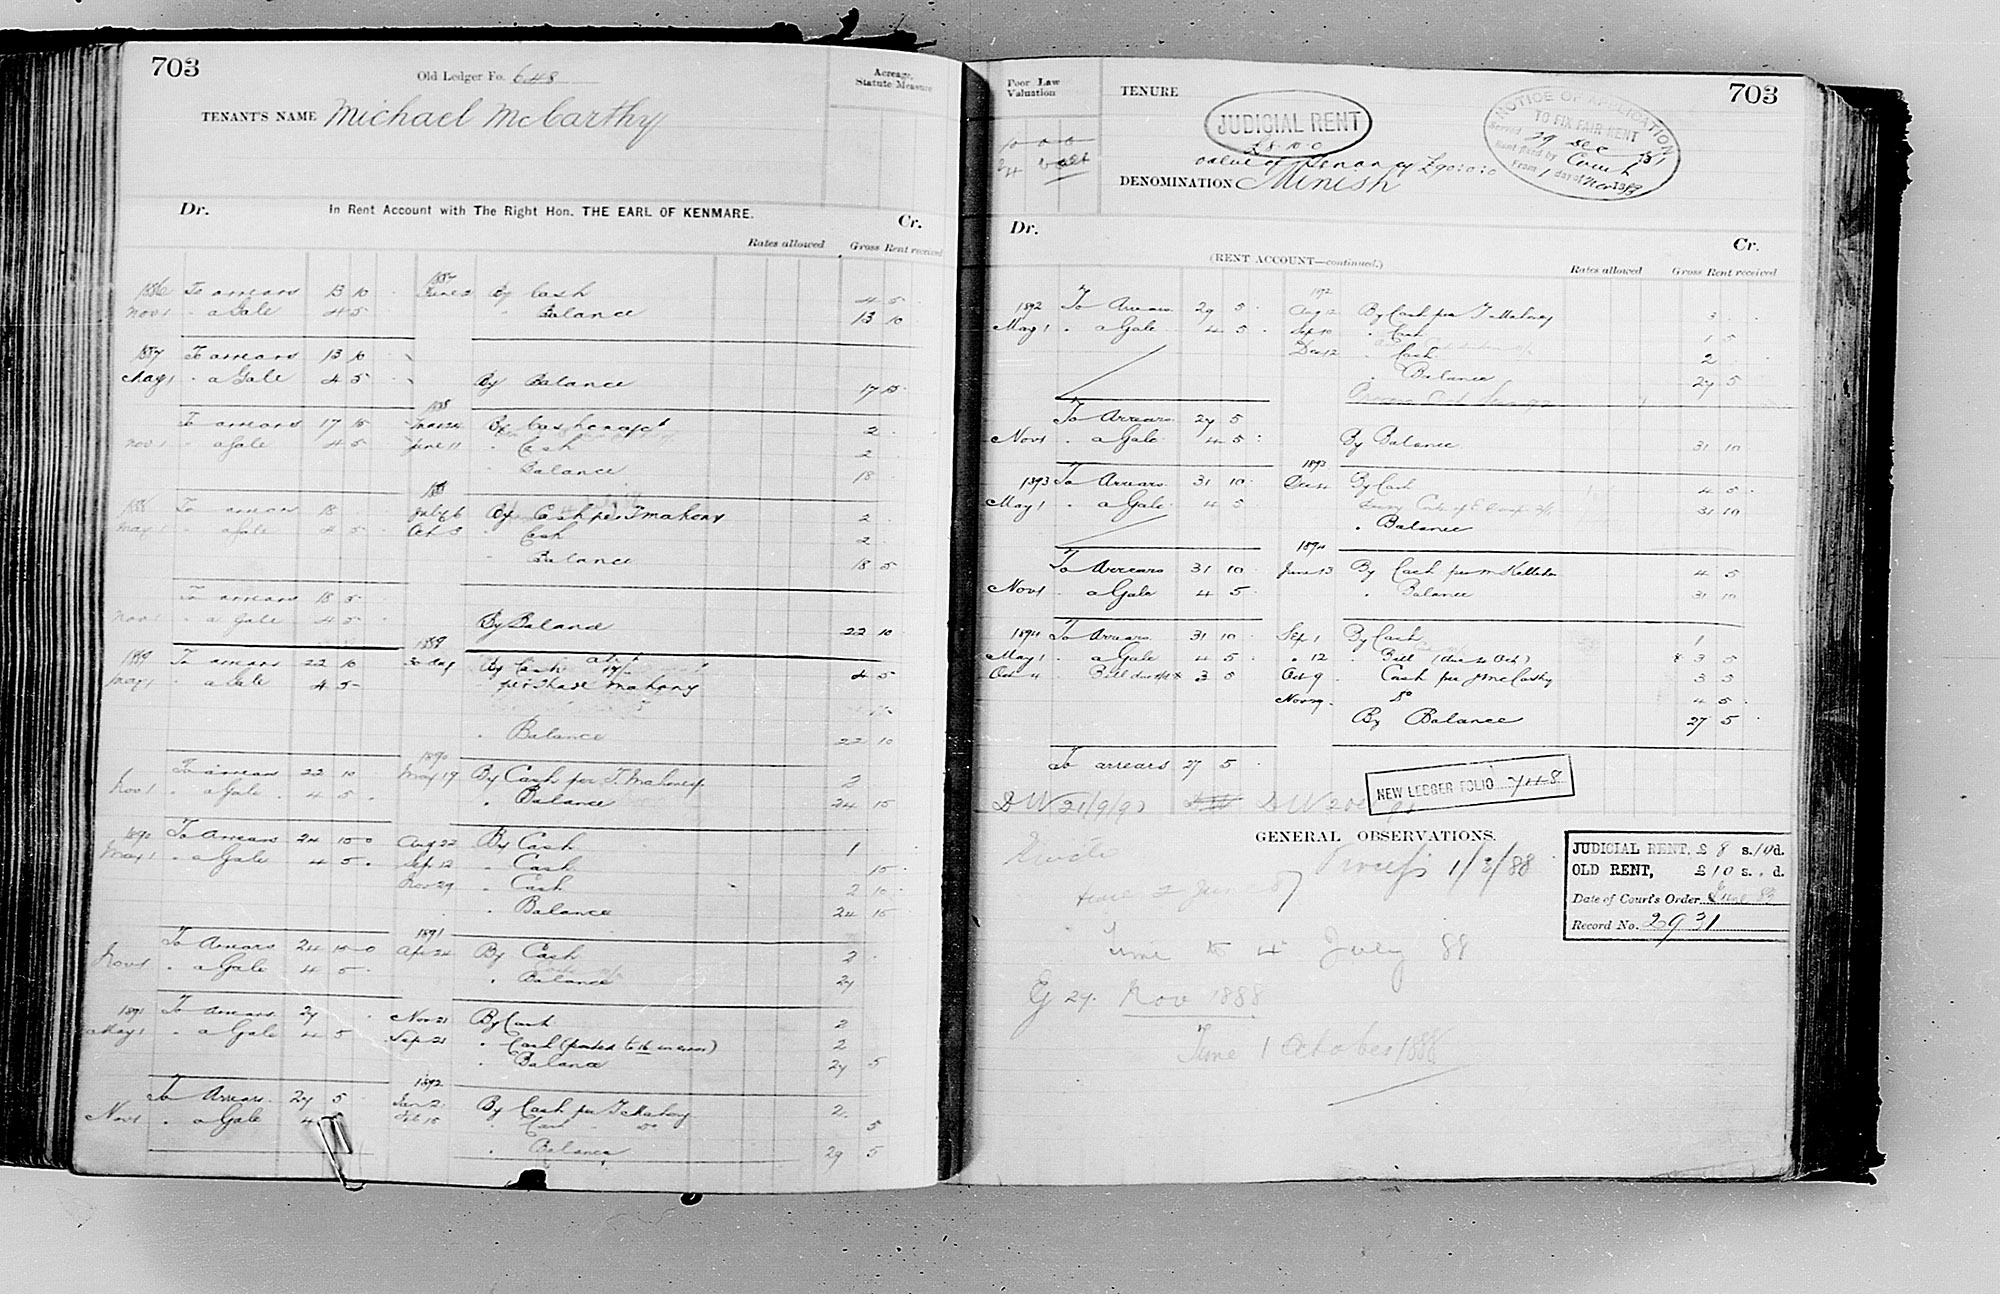 703
Old Ledger Fo. 648
Acreage, Statute Measure
TENANT'S NAME Michael McCarthy
Dr. In Rent Account with The Right Hon. THE EARL OF KENMARE. Cr.
Rates allowed Gross Rent received
1887
1886 To arrears 13 10 June 2 By Cash 4 5
Nov 1 " a Gale 4 5 " Balance 13 10
1887 To arrears 13 10
May 1 " a Gale 4 5 By Balance 17 15
1888
To arrears 17 15 By Cash 2
Nov 1 " a Gale 4 5 June 11 " Cash 2
" Balance 18
1888 To arrears 18 July 6 By Cash per T Mahony 2
May 1 " a Gale 4 5 Oct 5 " Cash 2
" Balance 18 5
To arrears 18 5
Nov 1 " a Gale 4 5 By Balance 22 10
1889
1889 To arrears 22 10 By Cash 4 5
May 1 " a Gale 4 5 per Mahony
" Balance 22 10
1890
To arrears 22 10 May 19 By Cash per T. Mahony 2
Nov 1 " a Gale 4 5 " Balance 24 15
1890 To Arrears 24 15 0 Aug 22 By Cash 1
May 1 " a Gale 4 5 Sep 12 " Cash 15
Nov 29 " Cash 2 10
" Balance 24 15
1891
To Arrears 24 15 0 Apr 24 By Cash 2
Nov 1 " a Gale 4 5 " Balance 27
1891 To Arrears 27 Nov 21 By Cash 2
May 1 " a Gale 4 5 Sep 21 " Cash (posted to 16 in error) 2
" Balance 27 5
1892
To Arrears 27 5 Jan 2 By Cash per T Mahony 2
Nov 1 " a Gale 4 Feb 15 " Cash do 5
" Balance 29 5
703
Poor Law Valuation
TENURE
JUDICIAL RENT
£8.10.0
NOTICE OF APPLICATION
TO FIX FAIR RENT
Served 29 Dec
Rent fixed by Court
From 1 day of Nov
value of Tenancy £90:0:0
DENOMINATION Minish
Dr. Cr.
(RENT ACCOUNT—continued.)
Rates allowed Gross Rent received
1892
1892 To Arrears 29 5 Aug 12 By Cash per T Mahony 3
May 1 " a Gale 4 5 Sep 10 " Cash 1 5
Dec 12 " Cash 2
" Balance 27 5
To Arrears 27 5
Nov 1 " a Gale 4 5 By Balance 31 10
1893
1893 To Arrears 31 10 By Cash 4 5
May 1 " a Gale 4 5 31 10
" Balance
1894
To Arrears 31 10 June 13 By Cash per M Kelleher 4 5
Nov 1 " a Gale 4 5 " Balance 31 10
1894 To Arrears 31 10 Sep 1 By Cash 1
May 1 " a Gale 4 5 " 12 " Bill (due 4 Oct) 3 5
Oct 4 Bill due 3 5 Oct 9 " Cash per J McCarthy 3 5
Nov 29 Do 4 5
By Balance 27 5
To arrears 27 5
NEW LEDGER FOLIO 7448
DW 21/9/93
GENERAL OBSERVATIONS.
JUDICIAL RENT, £ 8 s. 10 d.
OLD RENT, £ 10 s. . d.
Date of Court's Order
Record No. 2931
Process 1/3/88
Time to 4 July 88
Nov 1888
Time 1 October 1888